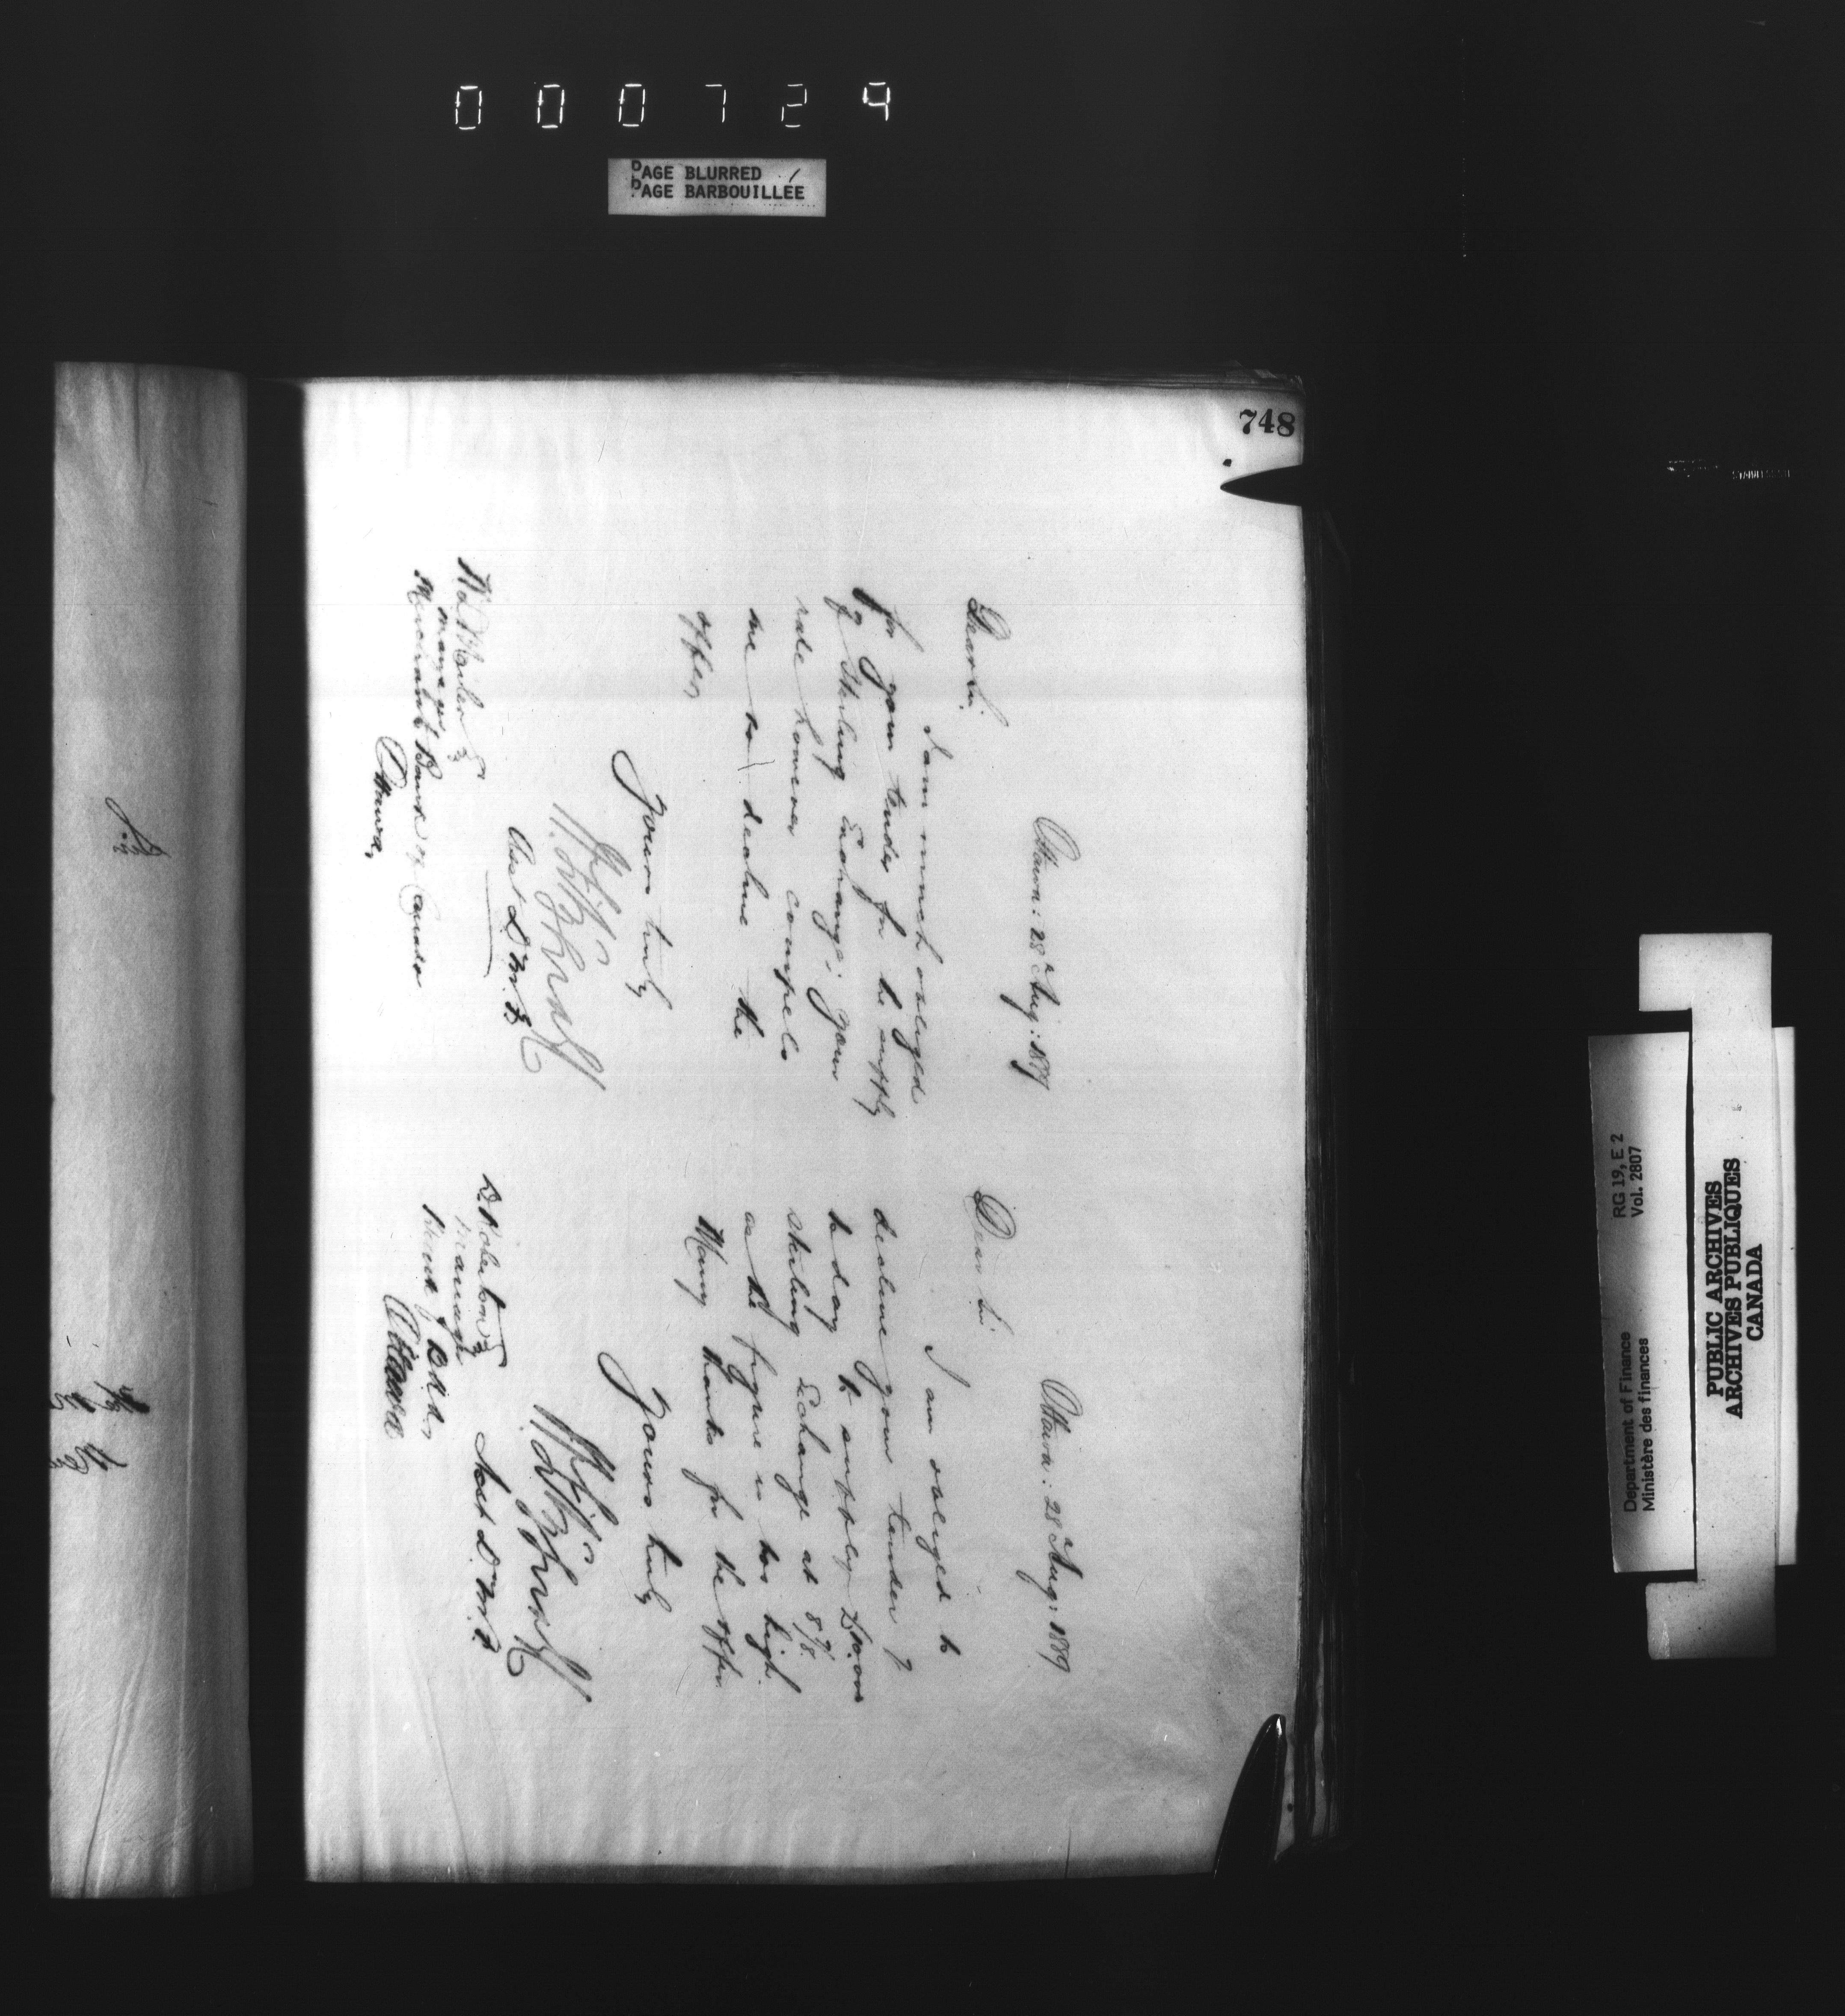 000724
PAGE BLURRED
PAGE BARBOUILLÉE
748
Ottawa: 28th Aug: 1889
Dear Sir.
I am much obliged
for your tender for the supply
of Sterling Exchange; your
rate however compels
me to decline the
offer,
Yours truly
Asst D. M. F.
Manager
Merchants Bank of Canada
Ottawa,
Ottawa: 28th Aug: 1889
Dear Sir
I am obliged to
decline your tender of
to day to supply
Sterling Exchange at 8⅞
as the figure is too high.
Many thanks for the offer.
Yours truly
Asst D. M. F.
D. Robertson Esq
Manager
Bank of B.N.A.,
Ottawa
Sir
RG 19, E 2
Vol. 2807
Department of Finance
Ministère des finances
PUBLIC ARCHIVES
ARCHIVES PUBLIQUES
CANADA